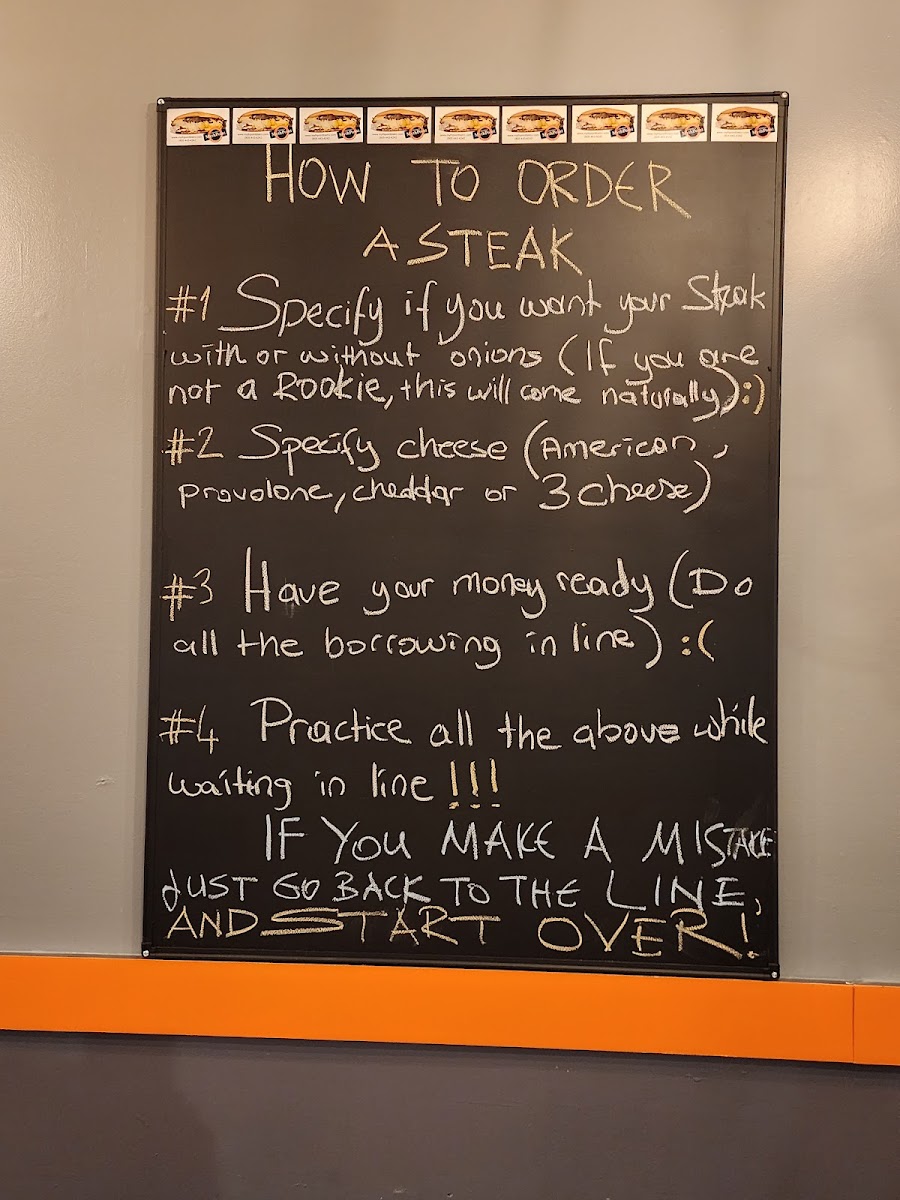 HOW TO ORDER
A STEAK
#1 Specify if you want your Steak
with or without onions (If you are
not a Rookie, this will come naturally) :)
#2 Specify cheese (American,
provolone, cheddar or 3 cheese)
#3 Have your money ready (Do
all the borrowing in line) :(
#4 Practice all the above while
waiting in line !!!
IF YOU MAKE A MISTAKE
JUST GO BACK TO THE LINE,
AND START OVER!